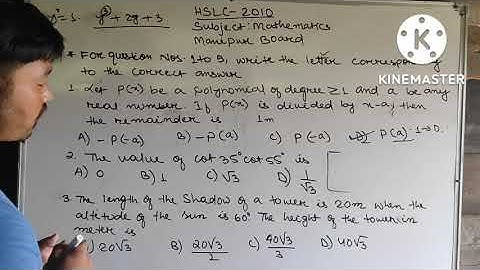 HSLC-2010
y°=1. y³+2y+3
Subject: Mathematics
Manipur Board
* For question Nos. 1 to 9, write the letter corresponding
to the correct answer
1. Let P(x) be a polynomial of degree ≥1 and a be any
real number. If P(x) is divided by x-a, then
the remainder is 1m
A) -P(-a) B) -P(a) C) P(-a) D) P(a) 1→D.
2. The value of cot 35° cot 55° is
A) 0 B) 1 C) √3 D) 1/√3
3. The length of the Shadow of a tower is 20m when the
altitude of the sun is 60° The height of the tower in
meter is
A) 20√3 B) 20√3/2 C) 40√3/3 D) 40√3
KINEMASTER